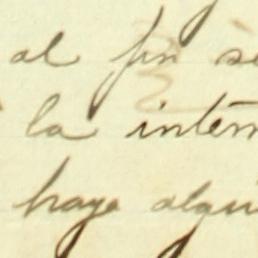 al fin se
la intern
haya algun